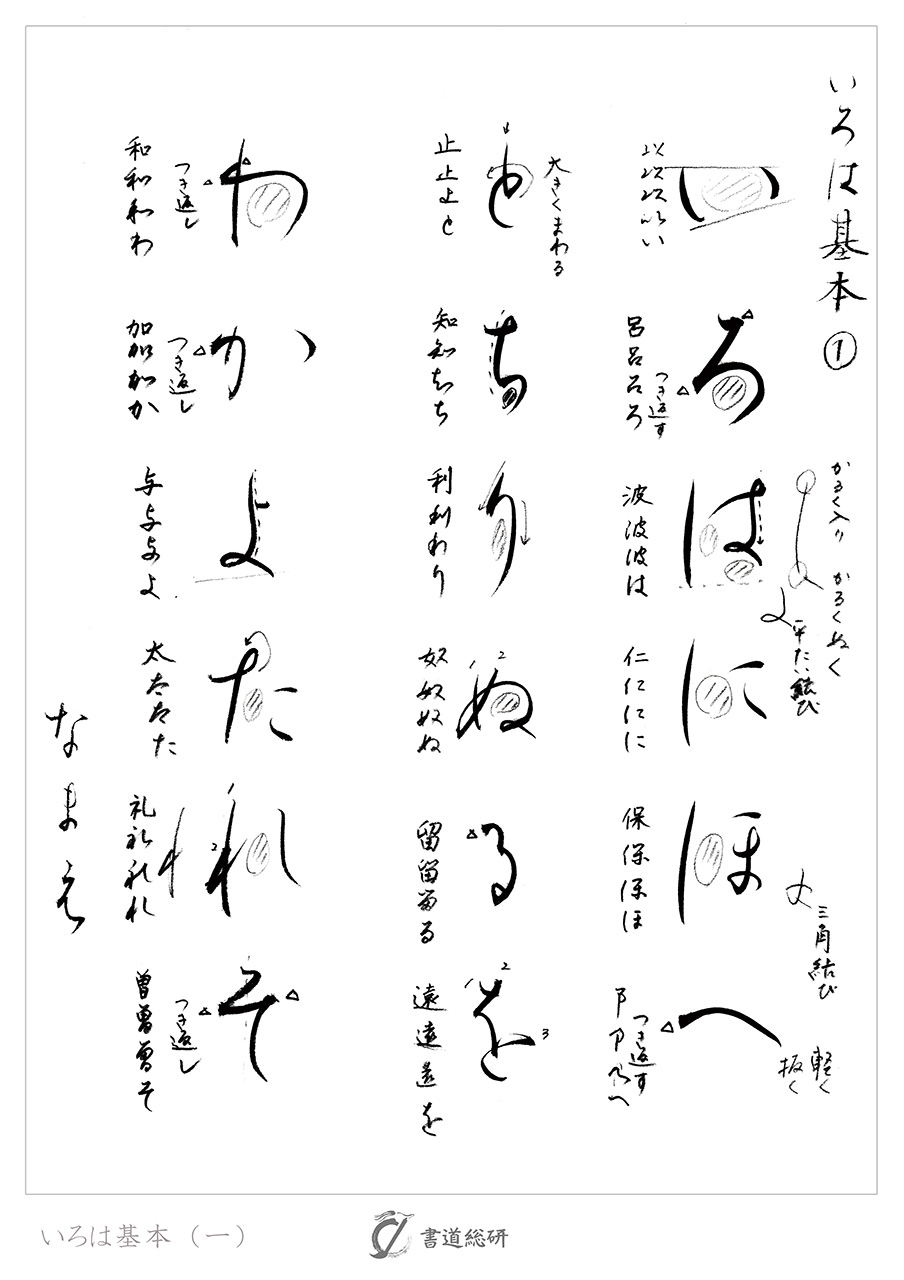 いろは基本①
い
以以以以い
ろ
呂呂呂ろ
つき返す
は
波波波は
かるく入り かるくぬく
平たい結び
に
仁仁に に
ほ
保保保ほ
三角結び
へ
つき返す
軽く
抜く
と
大きくまわる
止止止と
ち
知知知ち
り
利利利り
ぬ
1 2
奴奴奴ぬ
る
留留留る
を
1 2 3
遠遠遠を
わ
つき返し
和和和わ
か
つき返し
加加加か
よ
与与与よ
た
太太太た
れ
礼礼礼れ
そ
つき返し
曽曽曽そ
なまえ
いろは基本（一）
書道総研